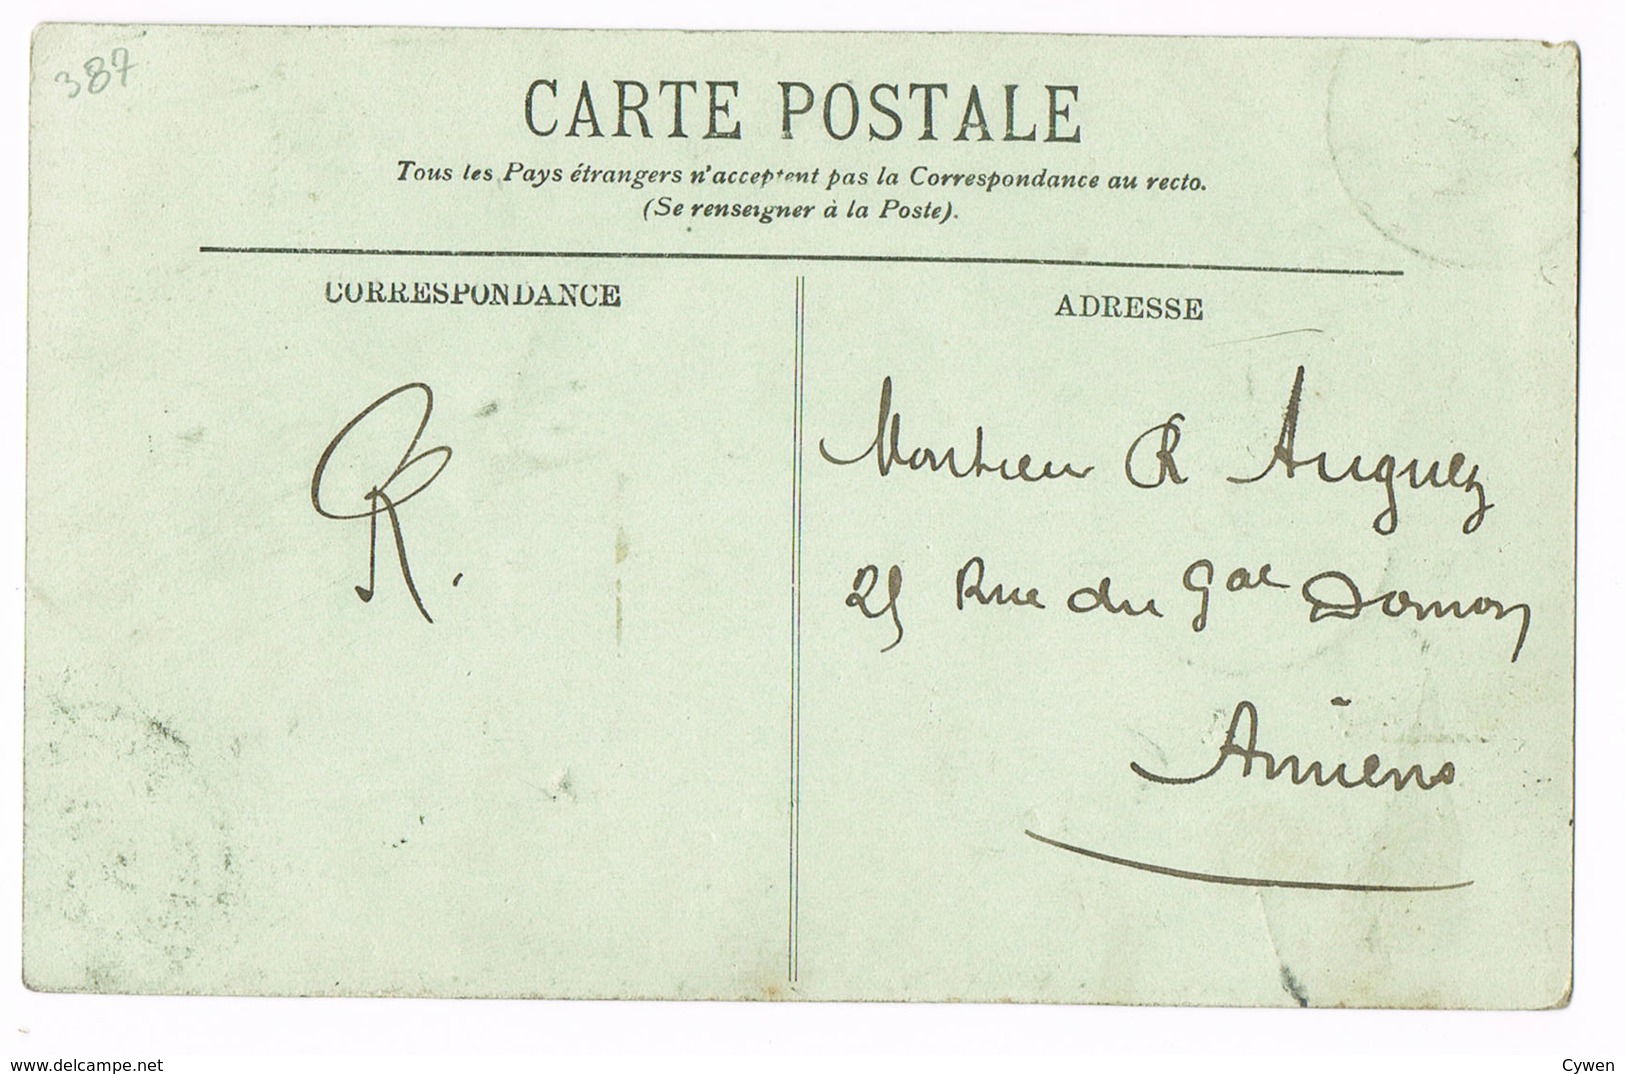 387
CARTE POSTALE
Tous les Pays étrangers n'acceptent pas la Correspondance au recto.
(Se renseigner à la Poste).
CORRESPONDANCE
R.
ADRESSE
Monsieur R Auguez
25 Rue du Gal Domon
Amiens
http://www.delcampe.net
Cywen